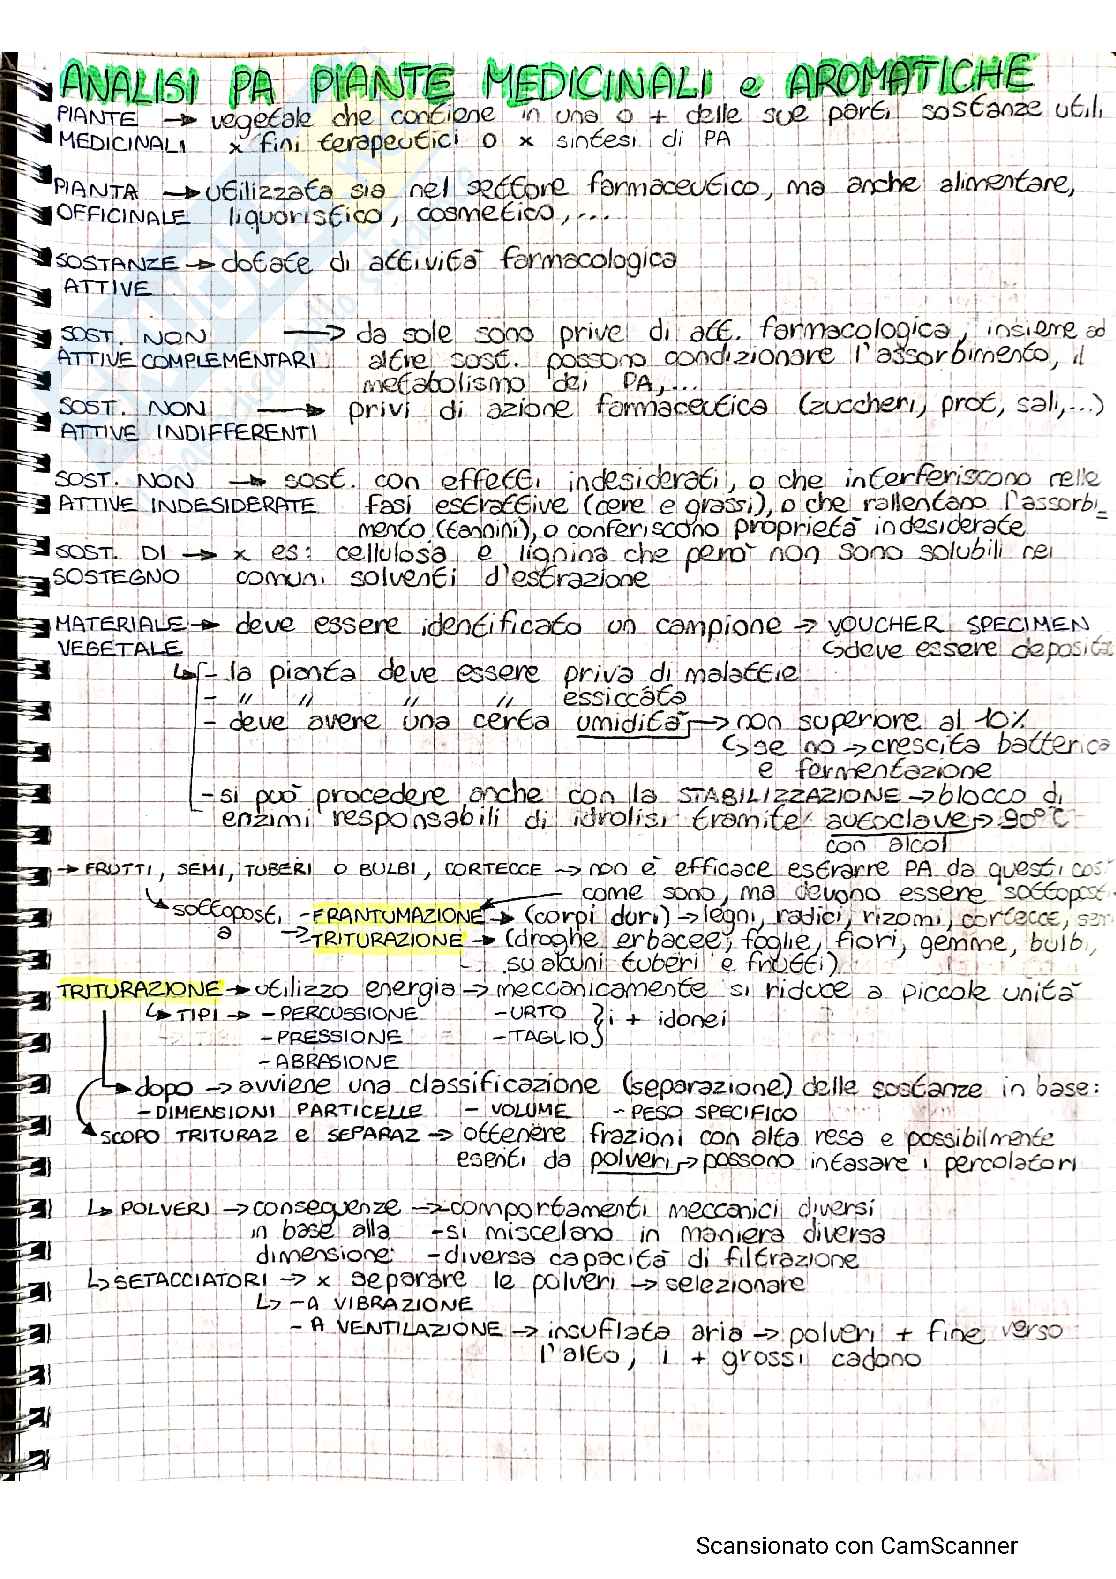 ANALISI PA PIANTE MEDICINALI e AROMATICHE
PIANTE → vegetale che contiene in una o + delle sue parti sostanze utili
MEDICINALI x fini terapeutici o x sintesi di PA
PIANTA → utilizzata sia nel settore farmaceutico, ma anche alimentare,
OFFICINALE liquoristico, cosmetico,...
SOSTANZE → dotate di attività farmacologica
ATTIVE
SOST. NON → da sole sono prive di att. farmacologica, insieme ad
ATTIVE COMPLEMENTARI altre sost. possono condizionare l'assorbimento, il
metabolismo dei PA,...
SOST. NON → privi di azione farmaceutica (zuccheri, prot, sali,...)
ATTIVE INDIFFERENTI
SOST. NON → sost. con effetti indesiderati, o che interferiscono nelle
ATTIVE INDESIDERATE fasi estrattive (cere e grassi), o che rallentano l'assorbi_
mento (tannini), o conferiscono proprietà indesiderate
SOST. DI → x es: cellulosa e lignina che però non sono solubili nei
SOSTEGNO comuni solventi d'estrazione
MATERIALE → deve essere identificato un campione → VOUCHER SPECIMEN
VEGETALE ↳ deve essere
↳ - la pianta deve essere priva di malattie
- " " " essiccata
- deve avere una certa umidità → non superiore al 10%
↳ se no → crescita batterica
e fermentazione
- si può procedere anche con la STABILIZZAZIONE → blocco di
enzimi responsabili di idrolisi tramite autoclave → 90°C
con alcol
→ FRUTTI, SEMI, TUBERI O BULBI, CORTECCE → non è efficace estrarre PA da questi così
come sono, ma devono essere
↳ sottoposti - FRANTUMAZIONE → (corpi duri) → legni, radici, rizomi, cortecce,
a → TRITURAZIONE → (droghe erbacee, foglie, fiori, gemme, bulbi,
su alcuni tuberi e frutti)
TRITURAZIONE → utilizzo energia → meccanicamente si riduce a piccole unità
↳ TIPI → - PERCUSSIONE - URTO } i + idonei
- PRESSIONE - TAGLIO }
- ABRASIONE
↳ dopo → avviene una classificazione (separazione) delle sostanze in base:
- DIMENSIONI PARTICELLE - VOLUME - PESO SPECIFICO
SCOPO TRITURAZ e SEPARAZ → ottenere frazioni con alta resa e possibilmente
esenti da polveri → possono intasare i percolatori
↳ POLVERI → conseguenze → comportamenti meccanici diversi
in base alla - si miscelano in maniera diversa
dimensione: - diversa capacità di filtrazione
↳ SETACCIATORI → x separare le polveri → selezionare
↳ - A VIBRAZIONE
- A VENTILAZIONE → insuflata aria → polveri + fine verso
l'alto, i + grossi cadono
Scansionato con CamScanner